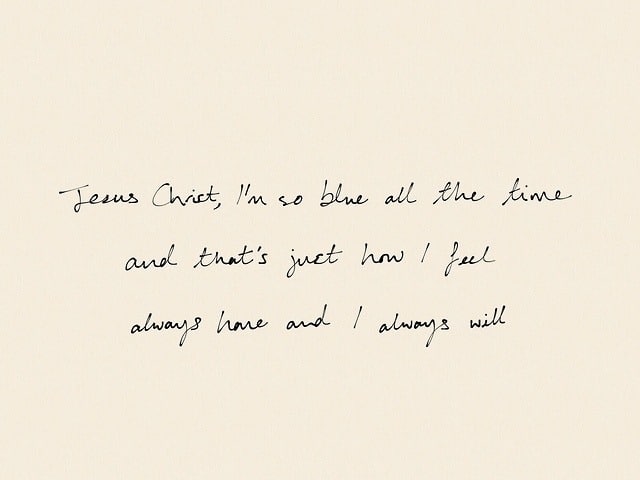 Jesus Christ, I'm so blue all the time
and that's just how I feel
always have and I always will